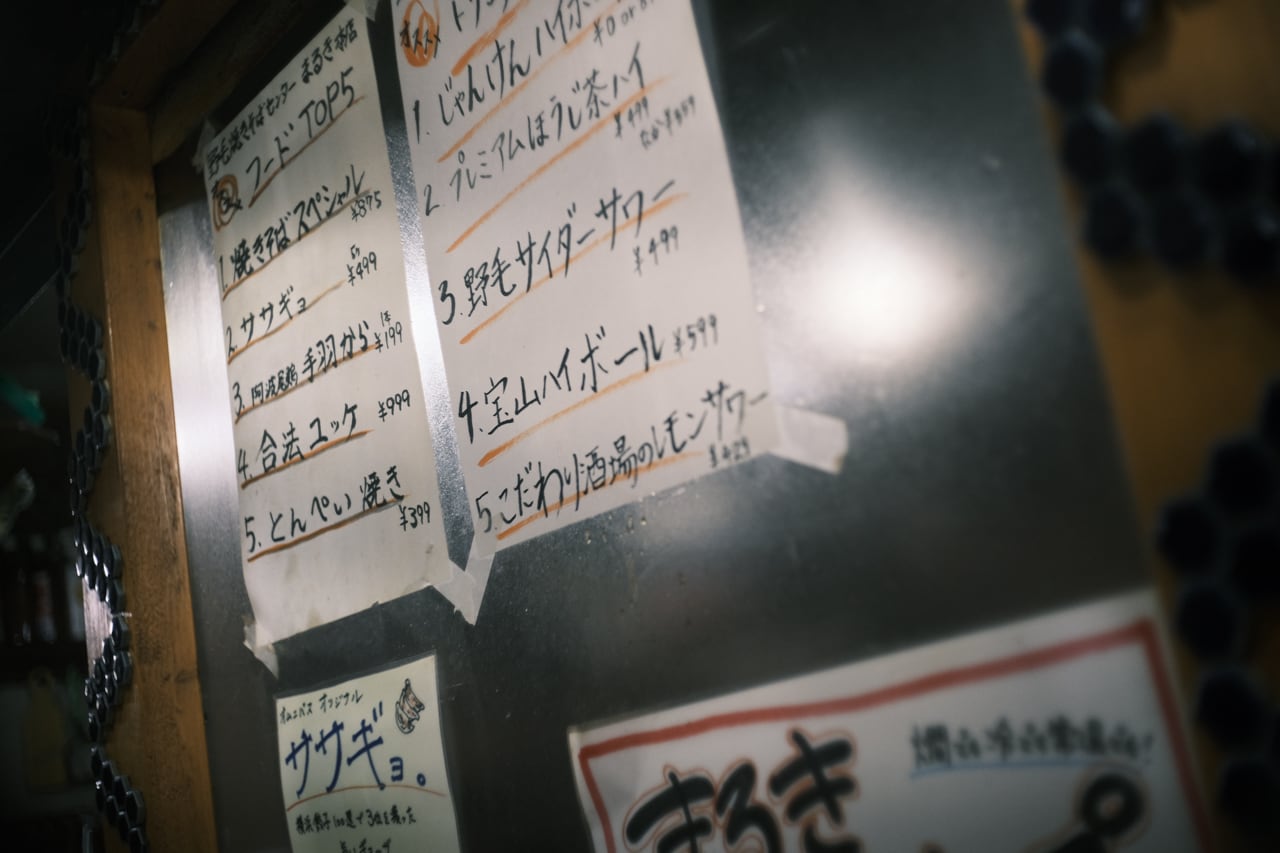 野毛焼きそばセンター まるき商店
フード TOP5
1. 焼きそばスペシャル
¥875
2. ササギョ
5コ ¥499
3. 阿波尾鶏 手羽から
1本 ¥199
4. 合法ユッケ ¥999
5. とんぺい焼き
¥399
オススメ
1. じゃんけんハイボ
¥0 or
2 プレミアムほうじ茶ハイ
¥499
3. 野毛サイダーサワー
¥499
4. 宝山ハイボール ¥599
5. こだわり酒場のレモンサワー
オムニバス オリジナル
ササギョ。
まるき